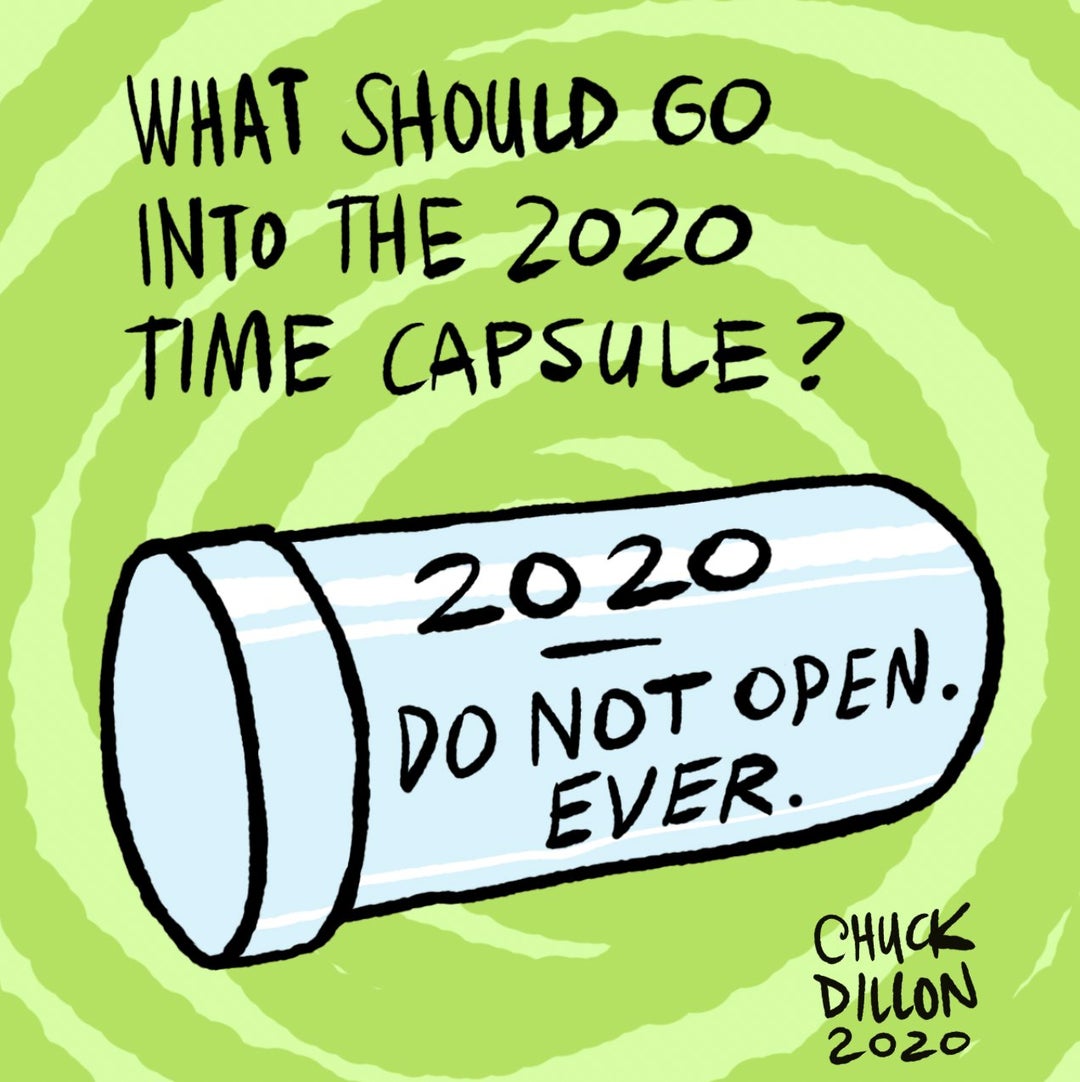 WHAT SHOULD GO
INTO THE 2020
TIME CAPSULE?
2020
DO NOT OPEN.
EVER.
CHUCK
DILLON
2020